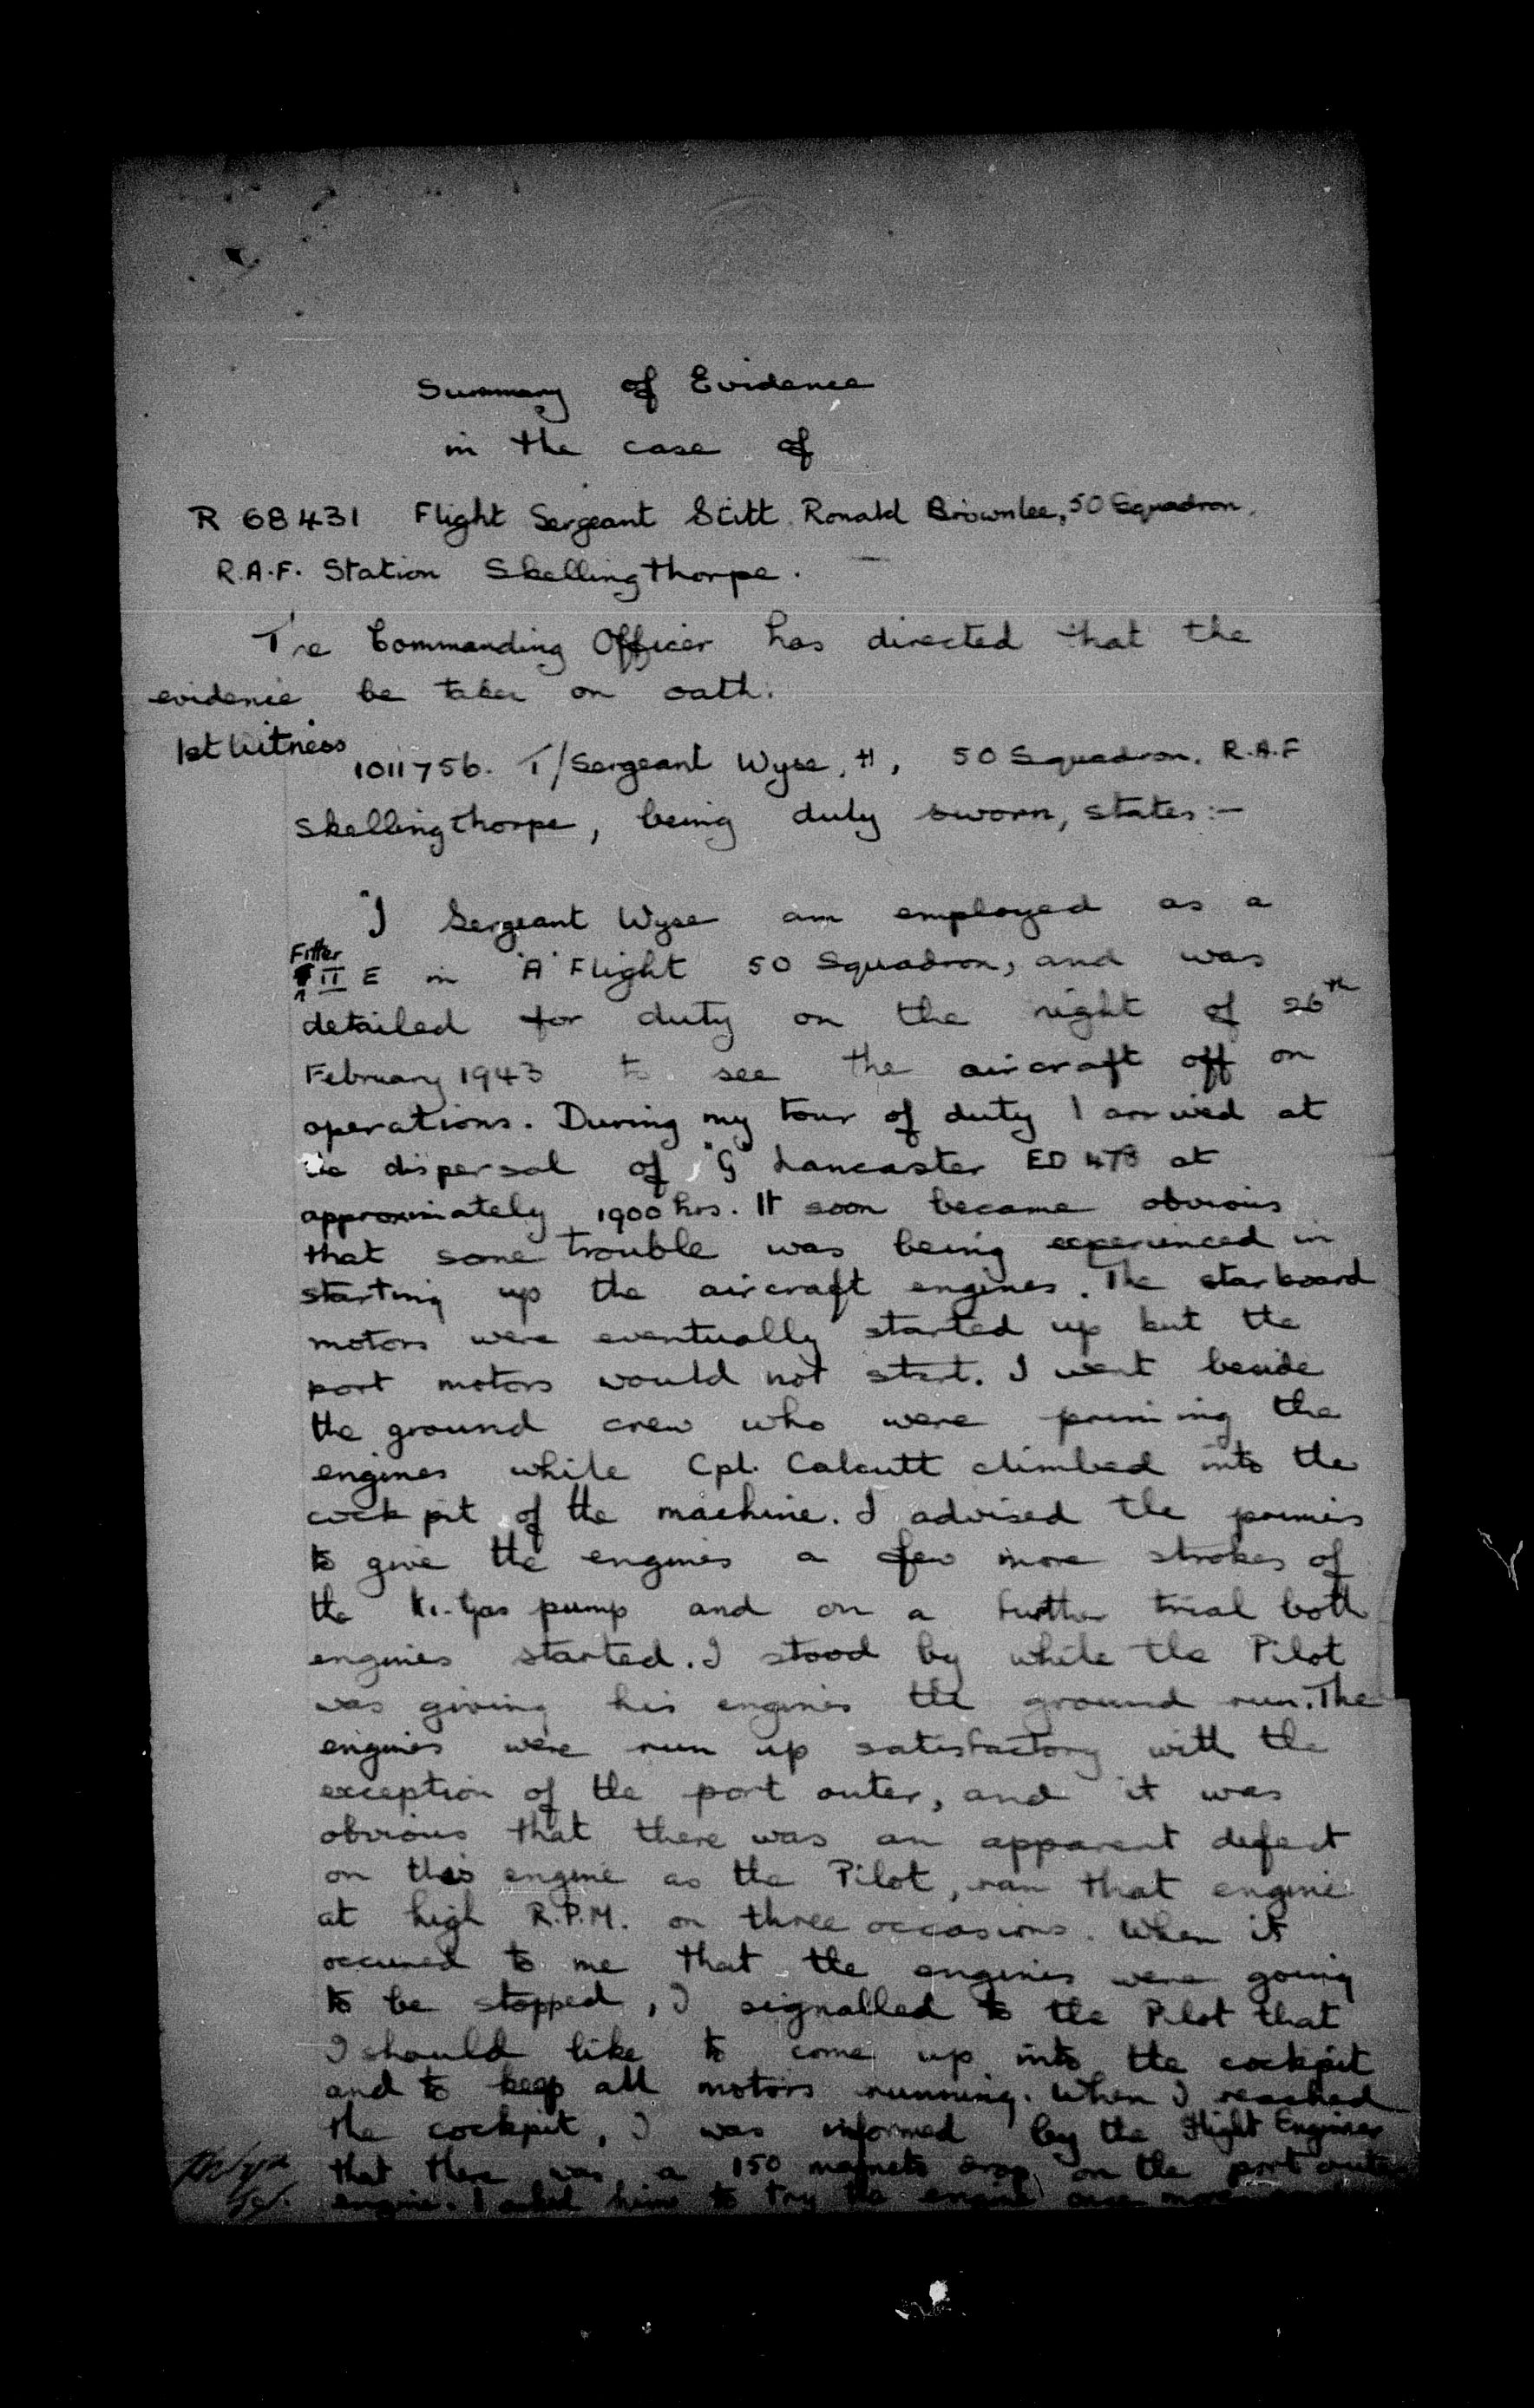 Summary of Evidence
in the case of
R 68431 Flight Sergeant Stitt Ronald Brownlee, 50 Squadron.
R.A.F. Station Skellingthorpe.
The Commanding Officer has directed that the
evidence be taken on oath.
1st Witness
1011756. T/Sergeant Wyse, H, 50 Squadron. R.A.F
Skellingthorpe, being duly sworn, states:-
"I Sergeant Wyse am employed as a
Fitter
II E in 'A' Flight 50 Squadron, and was
detailed for duty on the night of 26th
February 1943 to see the aircraft off on
operations. During my tour of duty I arrived at
dispersal of "G" Lancaster ED 478 at
approximately 1900 hrs. It soon became obvious
that some trouble was being experienced in
starting up the aircraft engines. The starboard
motors were eventually started up but the
port motors would not start. I went beside
the ground crew who were priming the
engines while Cpl. Calcutt climbed into the
cockpit of the machine. I advised the primers
to give the engines a few more strokes of
the Ki-Gas pump and on a further trial both
engines started. I stood by while the Pilot
was giving his engines the ground run. The
engines were run up satisfactory with the
exception of the port outer, and it was
obvious that there was an apparent defect
on this engine as the Pilot, ran that engine
at high R.P.M. on three occasions. When it
occured to me that the engines were going
to be stopped, I signalled to the Pilot that
I should like to come up into the cockpit
and to keep all motors running. When I reached
the cockpit, I was informed by the Flight Engineer
that there was a 150 magneto drop on the port outer
engine. I asked him to try the engine once more